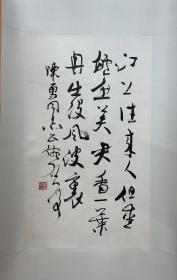 江上往来人但愛
鱸魚美君看一葉
舟出没風波裏
陳勇同志正